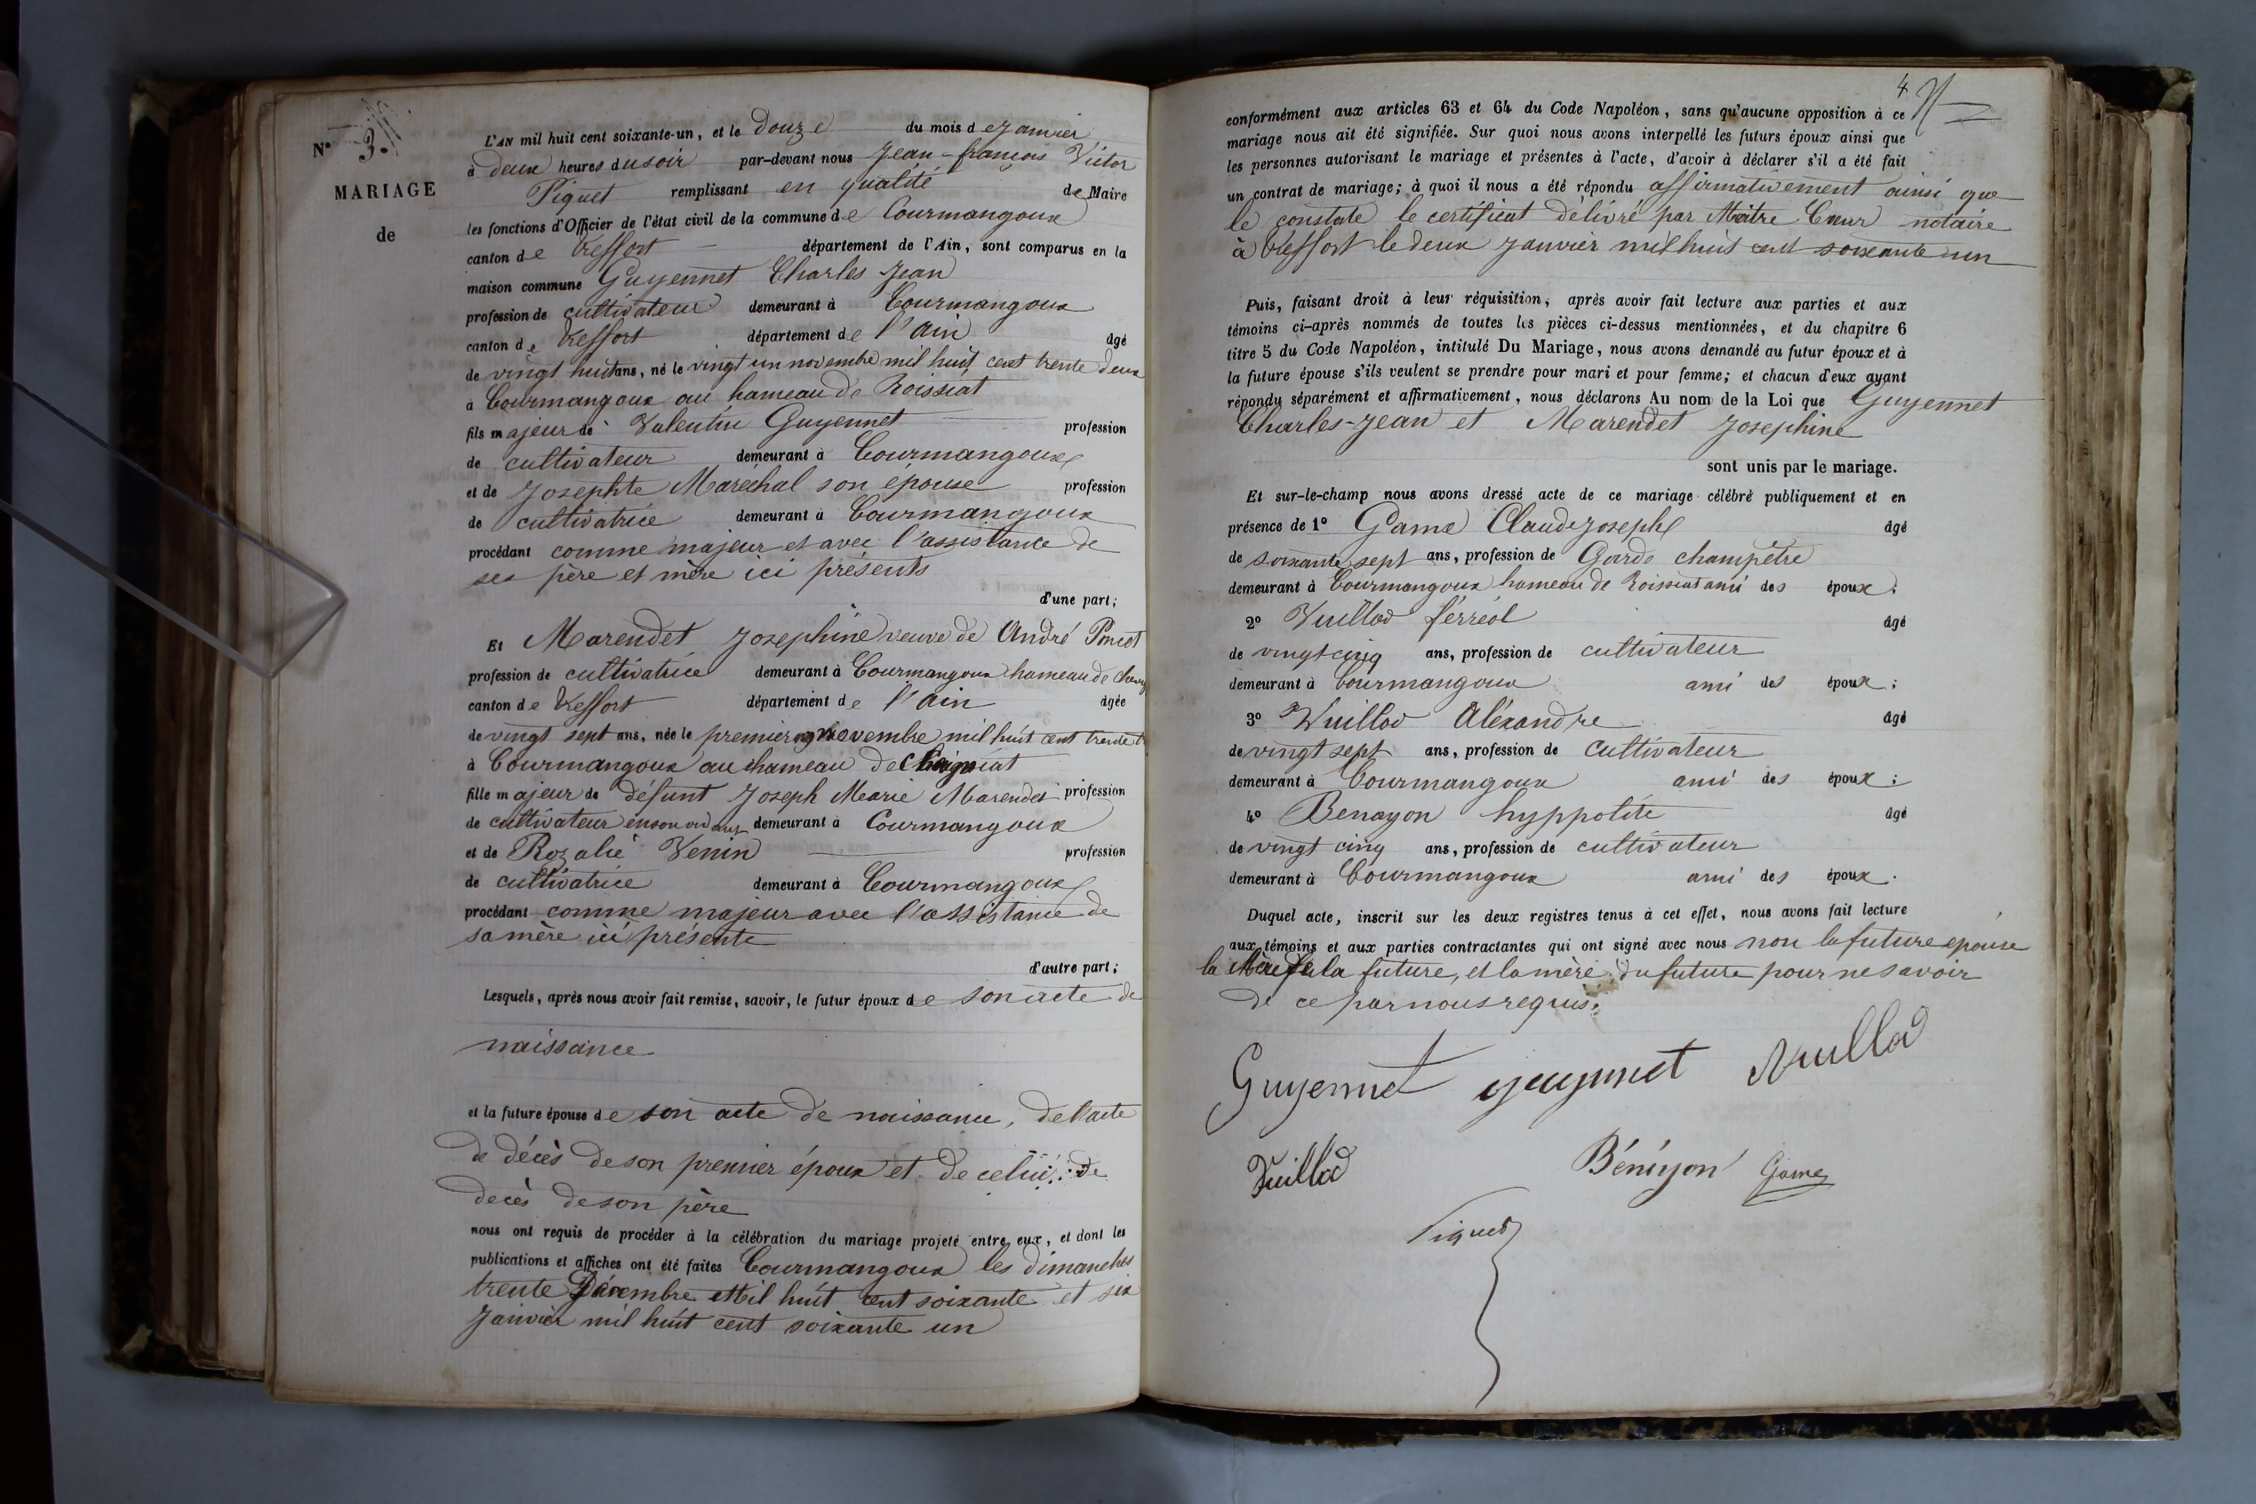 N° 3.
MARIAGE
de
L'AN mil huit cent soixante-un, et le douze du mois de Janvier
à deux heures du soir par-devant nous Jean-françois Victor
Piquet remplissant en qualité de Maire
les fonctions d'Officier de l'état civil de la commune de Courmangoux
canton de Treffort département de l'Ain, sont comparus en la
maison commune Guyennet Charles Jean
profession de cultivateur demeurant à Courmangoux
canton de Treffort département de l'ain âgé
de vingt huit ans, né le vingt un novembre mil huit cent trente deux
à Courmangoux au hameau de Roissiat
fils majeur de Valentin Guyennet profession
de cultivateur demeurant à Courmangoux
et de Josephte Maréchal son épouse profession
de cultivatrice demeurant à Courmangoux
procédant comme majeur et avec l'assistance de
ses père et mère ici présents
d'une part;
Et Marendet Josephine veuve de André Poncet
profession de cultivatrice demeurant à Courmangoux hameau de
canton de Treffort département de l'ain âgée
de vingt sept ans, née le premier novembre mil huit cent trente
à Courmangoux au hameau de Chaigniat
fille majeur de défunt Joseph Marie Marendet profession
de cultivateur en son vivant demeurant à Courmangoux
et de Rozalie Venin profession
de cultivatrice demeurant à Courmangoux
procédant comme majeur avec l'assistance de
sa mère ici présente
d'autre part;
Lesquels, après nous avoir fait remise, savoir, le futur époux de son acte de
naissance
et la future épouse de son acte de naissance, de l'acte
de décès de son premier époux et de celui de
decès de son père
nous ont requis de procéder à la célébration du mariage projeté entre eux, et dont les
publications et affiches ont été faites Courmangoux les dimanches
trente Décembre Mil huit cent soixante et six
Janvier mil huit cent soixante un
4
conformément aux articles 63 et 64 du Code Napoléon, sans qu'aucune opposition à ce
mariage nous ait été signifiée. Sur quoi nous avons interpellé les futurs époux ainsi que
les personnes autorisant le mariage et présentes à l'acte, d'avoir à déclarer s'il a été fait
un contrat de mariage; à quoi il nous a été répondu affirmativement ainsi que
le constate le certificat délivré par Maître Cœur notaire
à Treffort le deux Janvier mil huit cent soixante un
Puis, faisant droit à leur réquisition, après avoir fait lecture aux parties et aux
témoins ci-après nommés de toutes les pièces ci-dessus mentionnées, et du chapitre 6
titre 5 du Code Napoléon, intitulé Du Mariage, nous avons demandé au futur époux et à
la future épouse s'ils veulent se prendre pour mari et pour femme; et chacun d'eux ayant
répondu séparément et affirmativement, nous déclarons Au nom de la Loi que Guyennet
Charles-Jean et Marendet Josephine
sont unis par le mariage.
Et sur-le-champ nous avons dressé acte de ce mariage célébré publiquement et en
présence de 1° Game Claude Joseph âgé
de soixante sept ans, profession de Garde champêtre
demeurant à Courmangoux hameau de Roissiat ami des époux;
2° Vuillod férréol âgé
de vingt cinq ans, profession de cultivateur
demeurant à Courmangoux ami des époux;
3° Vuillod Aléxandre âgé
de vingt sept ans, profession de cultivateur
demeurant à Courmangoux ami des époux;
4° Benayon hyppolite âgé
de vingt cinq ans, profession de cultivateur
demeurant à Courmangoux ami des époux.
Duquel acte, inscrit sur les deux registres tenus à cet effet, nous avons fait lecture
aux témoins et aux parties contractantes qui ont signé avec nous non la future epouse
la Mère de la future, et la mère du future pour ne savoir
de ce par nous requis.
Guyennet guyennet Vuillod
Vuillod Béniyon Game
Piquet